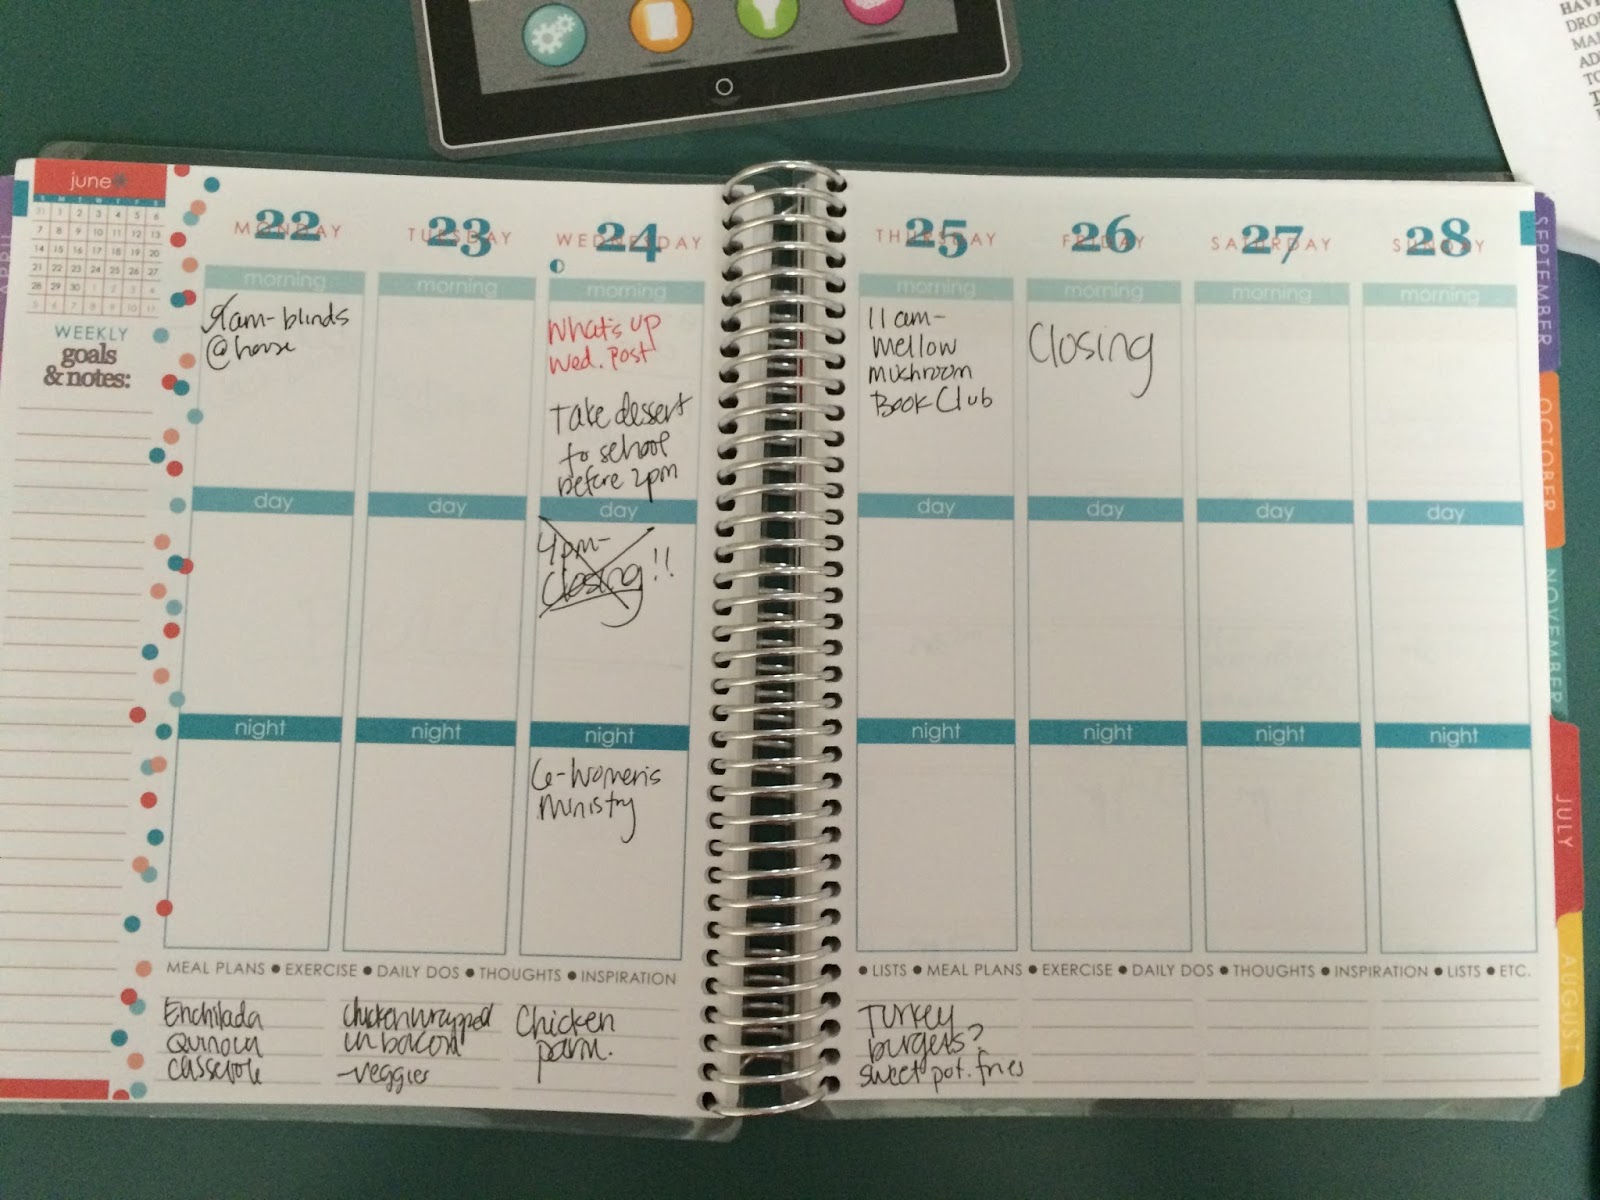 HAVE
DRO
MA
AD
TO
june
S M T W T F S
31 1 2 3 4 5 6
7 8 9 10 11 12 13
14 15 16 17 18 19 20
21 22 23 24 25 26 27
28 29 30 1 2 3 4
5 6 7 8 9 10 11
WEEKLY
goals
& notes:
22 MONDAY
morning
9am-blinds
@house
day
night
23 TUESDAY
morning
day
night
24 WEDNESDAY
morning
What's up
Wed. Post
Take desert
to school
before 2pm
day
4pm-
Closing!!
night
6-Women's
Ministry
MEAL PLANS • EXERCISE • DAILY DOS • THOUGHTS • INSPIRATION
Enchilada
Quinoa
Casserole
Chicken wrapped
in bacon
-veggies
Chicken
parm.
25 THURSDAY
morning
11am-
Mellow
Mushroom
Book Club
day
night
26 FRIDAY
morning
Closing
day
night
27 SATURDAY
morning
day
night
28 SUNDAY
morning
day
night
• LISTS • MEAL PLANS • EXERCISE • DAILY DOS • THOUGHTS • INSPIRATION • LISTS • ETC.
Turkey
burgers?
sweet pot. fries
APRIL
SEPTEMBER
OCTOBER
NOVEMBER
JULY
AUGUST